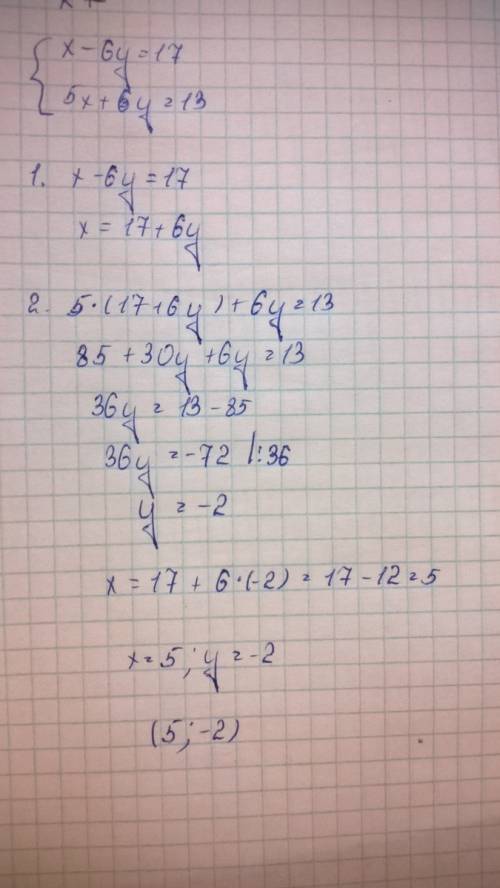 { x - 6y = 17
5x + 6y = 13
1. x - 6y = 17
x = 17 + 6y
2. 5·(17 + 6y) + 6y = 13
85 + 30y + 6y = 13
36y = 13 - 85
36y = -72 |:36
y = -2
x = 17 + 6·(-2) = 17 - 12 = 5
x = 5; y = -2
(5; -2)